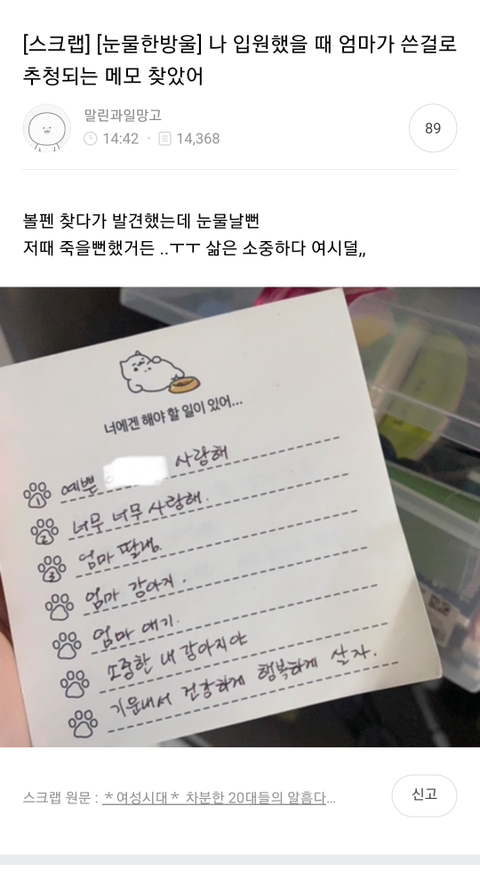 [스크랩] [눈물한방울] 나 입원했을 때 엄마가 쓴걸로
추청되는 메모 찾았어
말린과일망고
14:42 · 14,368
89
볼펜 찾다가 발견했는데 눈물날뻔
저때 죽을뻔했거든 ..ㅜㅜ 삶은 소중하다 여시덜,,
너에겐 해야 할 일이 있어...
1 예쁜 사랑해
2 너무 너무 사랑해.
3 엄마 딸래.
엄마 강아지.
엄마 애기.
소중한 내 강아지야
기운내서 건강하게 행복하게 살자.
스크랩 원문 : *여성시대* 차분한 20대들의 알흠다...
신고